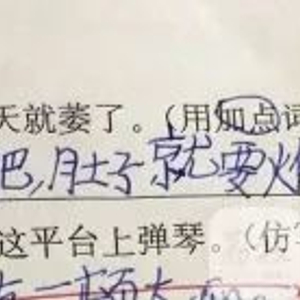 天就萎了。(用加点词
吧,肚子就要火
这平台上弹琴。(仿
一顿大